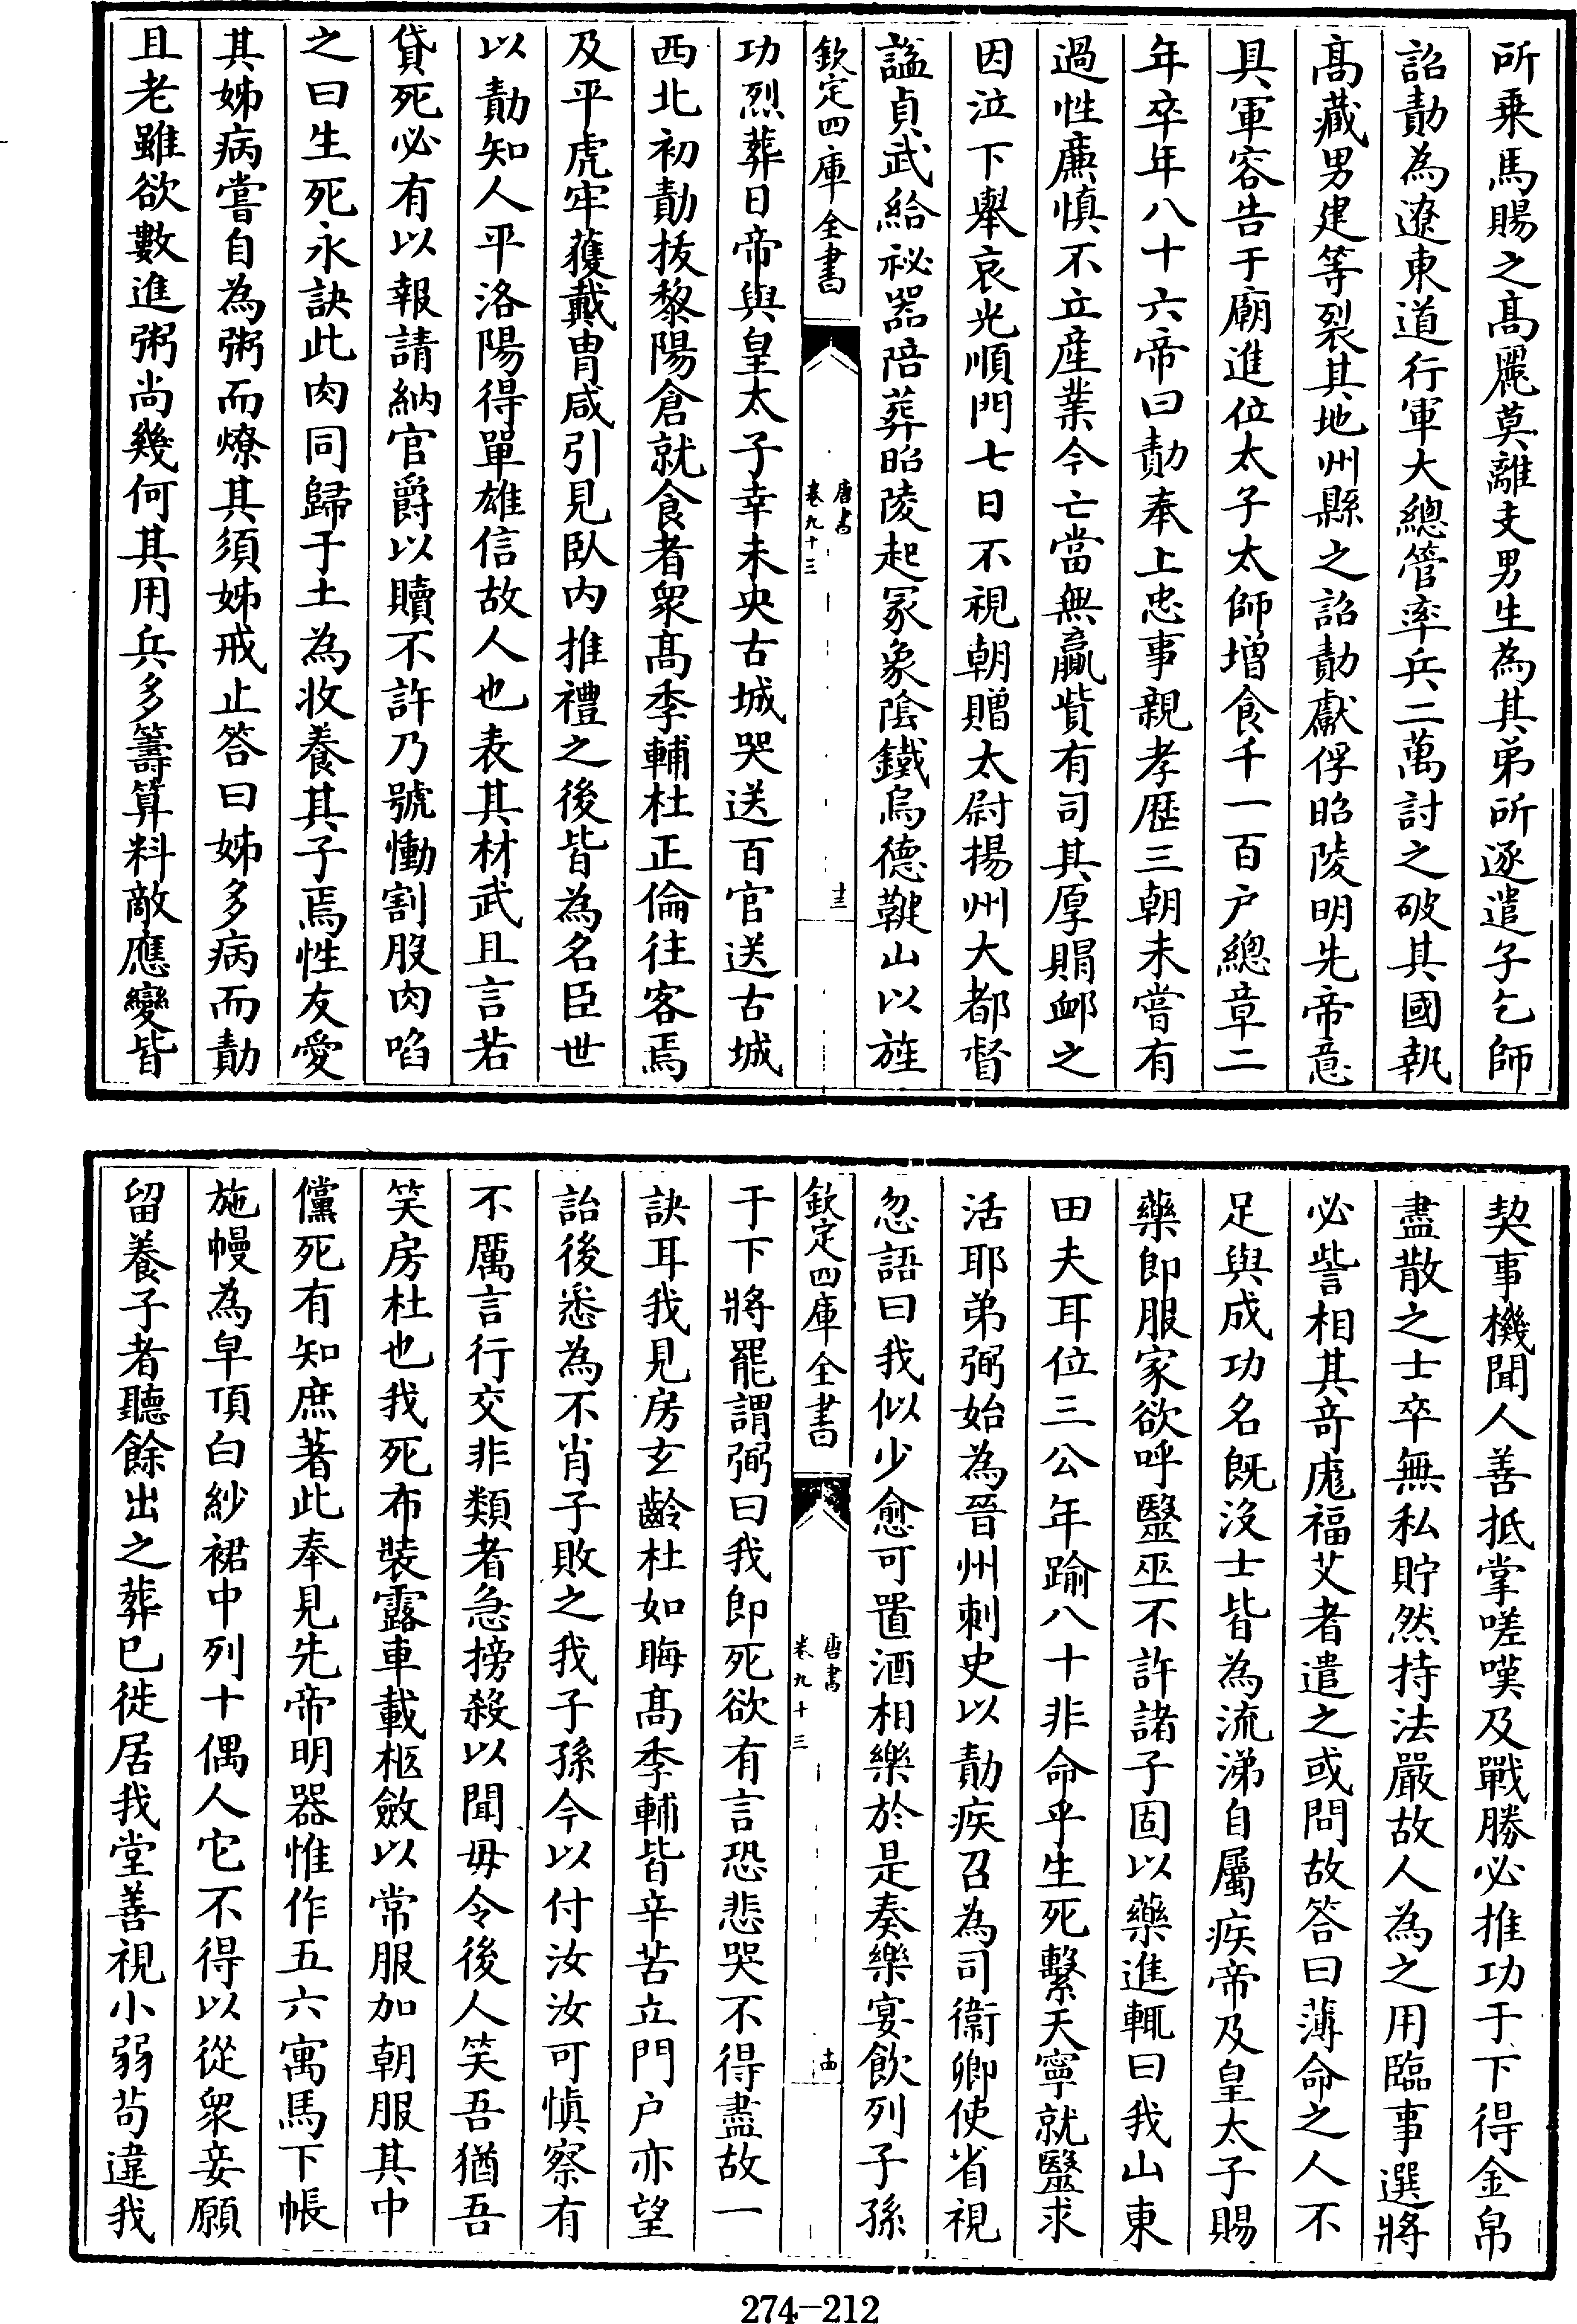 所乗馬賜之髙麗莫離支男生為其弟所逐遣子乞師
詔勣為遼東道行軍大總管率兵二萬討之破其國執
髙藏男建等裂其地州縣之詔勣獻俘昭陵明先帝意
具軍容告于廟進位太子太師增食千一百户總章二
年卒年八十六帝曰勣奉上忠事親孝歴三朝未嘗有
過性廉慎不立産業今亡當無贏貲有司其厚賵䘏之
因泣下舉哀光順門七日不視朝贈太尉揚州大都督
諡貞武給祕器陪葬昭陵起冢象隂鐵烏德鞬山以旌
欽定四庫全書
唐書
卷九十三
十三
功烈葬日帝與皇太子幸未央古城哭送百官送古城
西北初勣拔黎陽倉就食者衆髙季輔杜正倫往客焉
及平虎牢獲戴胄咸引見卧内推禮之後皆為名臣世
以勣知人平洛陽得單雄信故人也表其材武且言若
貸死必有以報請納官爵以贖不許乃號慟割股肉啗
之曰生死永訣此肉同歸于土為收養其子焉性友愛
其姊病嘗自為粥而燎其須姊戒止答曰姊多病而勣
且老雖欲數進粥尚幾何其用兵多籌算料敵應變皆
契事機聞人善抵掌嗟嘆及戰勝必推功于下得金帛
盡散之士卒無私貯然持法嚴故人為之用臨事選將
必訾相其竒厖福艾者遣之或問故答曰薄命之人不
足與成功名既没士皆為流涕自屬疾帝及皇太子賜
藥即服家欲呼醫巫不許諸子固以藥進輒曰我山東
田夫耳位三公年踰八十非命乎生死繫天寧就醫求
活耶弟弼始為晉州刺史以勣疾召為司衞卿使省視
忽語曰我似少愈可置酒相樂於是奏樂宴飲列子孫
欽定四庫全書
唐書
卷九十三
十四
于下將罷謂弼曰我即死欲有言恐悲哭不得盡故一
訣耳我見房玄齡杜如晦髙季輔皆辛苦立門户亦望
詒後悉為不肖子敗之我子孫今以付汝汝可慎察有
不厲言行交非類者急搒殺以聞毋令後人笑吾猶吾
笑房杜也我死布裝露車載柩斂以常服加朝服其中
儻死有知庶著此奉見先帝明器惟作五六寓馬下帳
施幔為皁頂白紗裙中列十偶人它不得以從衆妾願
留養子者聽餘出之葬已徙居我堂善視小弱苟違我
274-212